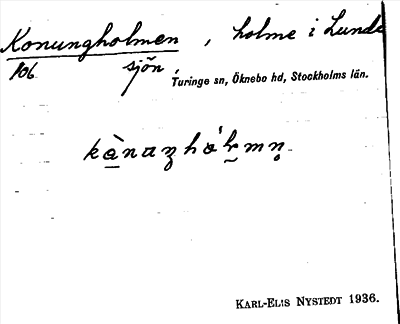 Konungholmen, holme i Lunda
106. sjön,
Turinge sn, Öknebo hd, Stockholms län.
kànaŋhólmn̥.
KARL-ELIS NYSTEDT 1936.